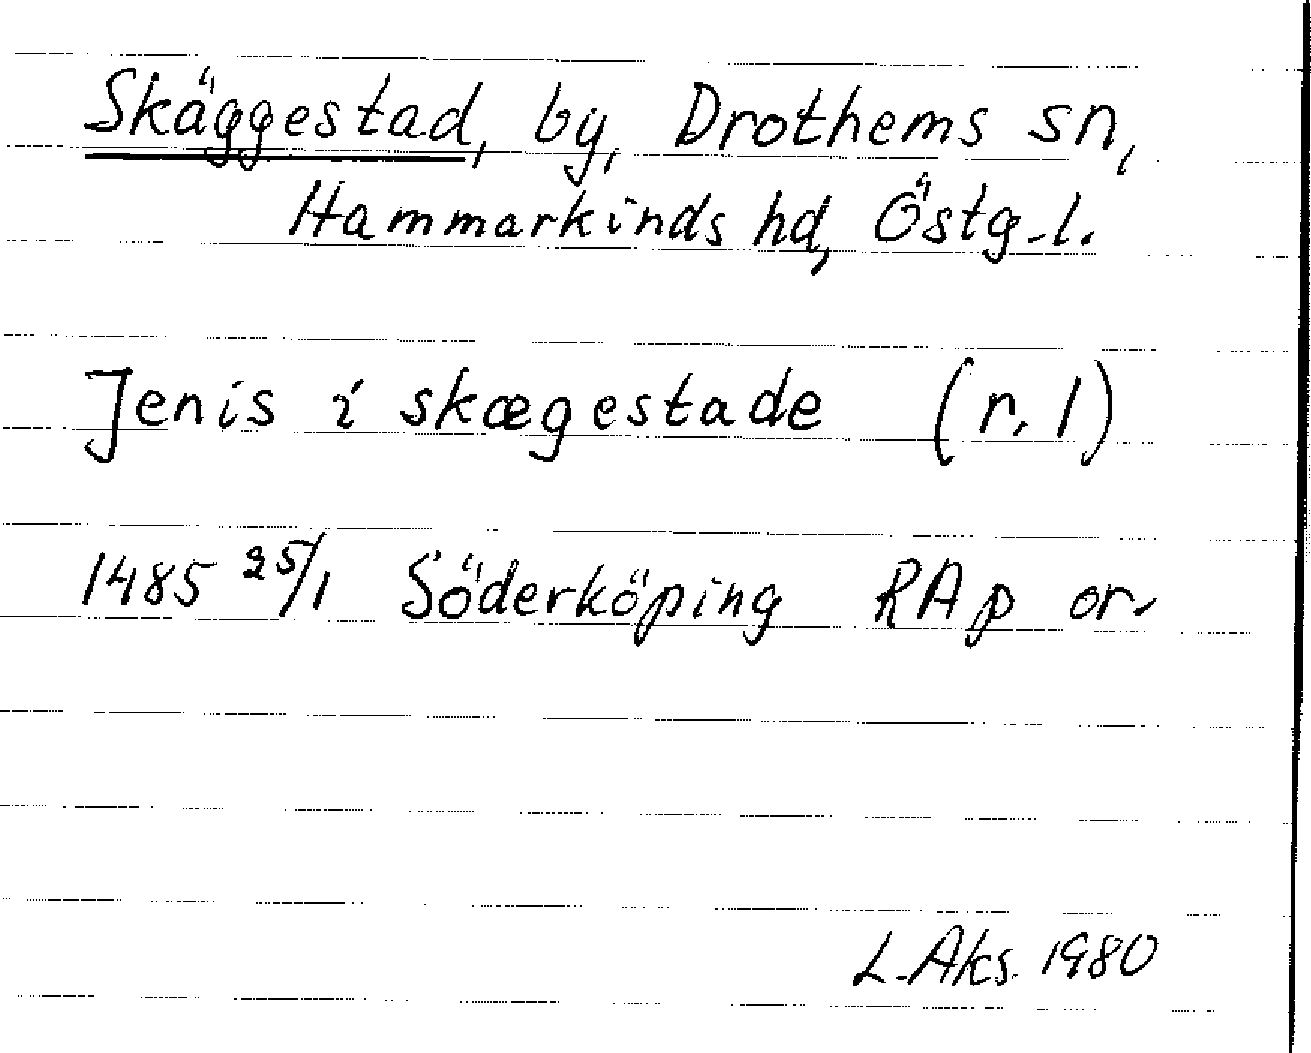 Skäggestad, by, Drothems sn,
Hammarkinds hd, Östg.l.
Jenis i skægestade (r. 1)
1485 25/1 Söderköping RAp or.
L.Aks. 1980